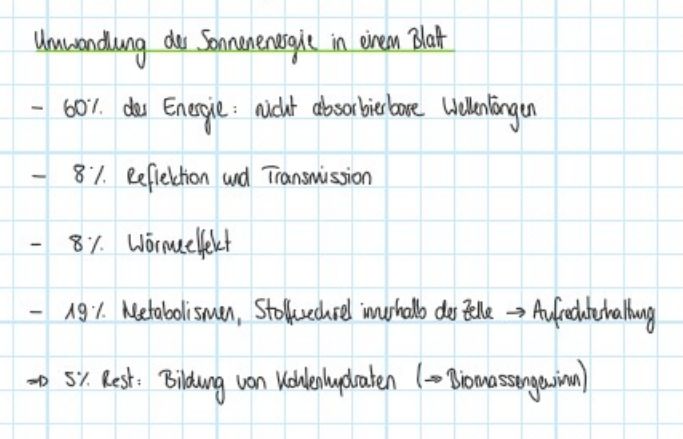 Umwandlung der Sonnenenergie in einem Blatt
- 60% der Energie: nicht absorbierbare Wellenlängen
- 8% Reflektion und Transmission
- 8% Wärmeeffekt
- 19% Metabolismen, Stoffwechsel innerhalb der Zelle → Aufrechterhaltung
⇒ 5% Rest: Bildung von Kohlenhydraten (→ Biomassengewinn)